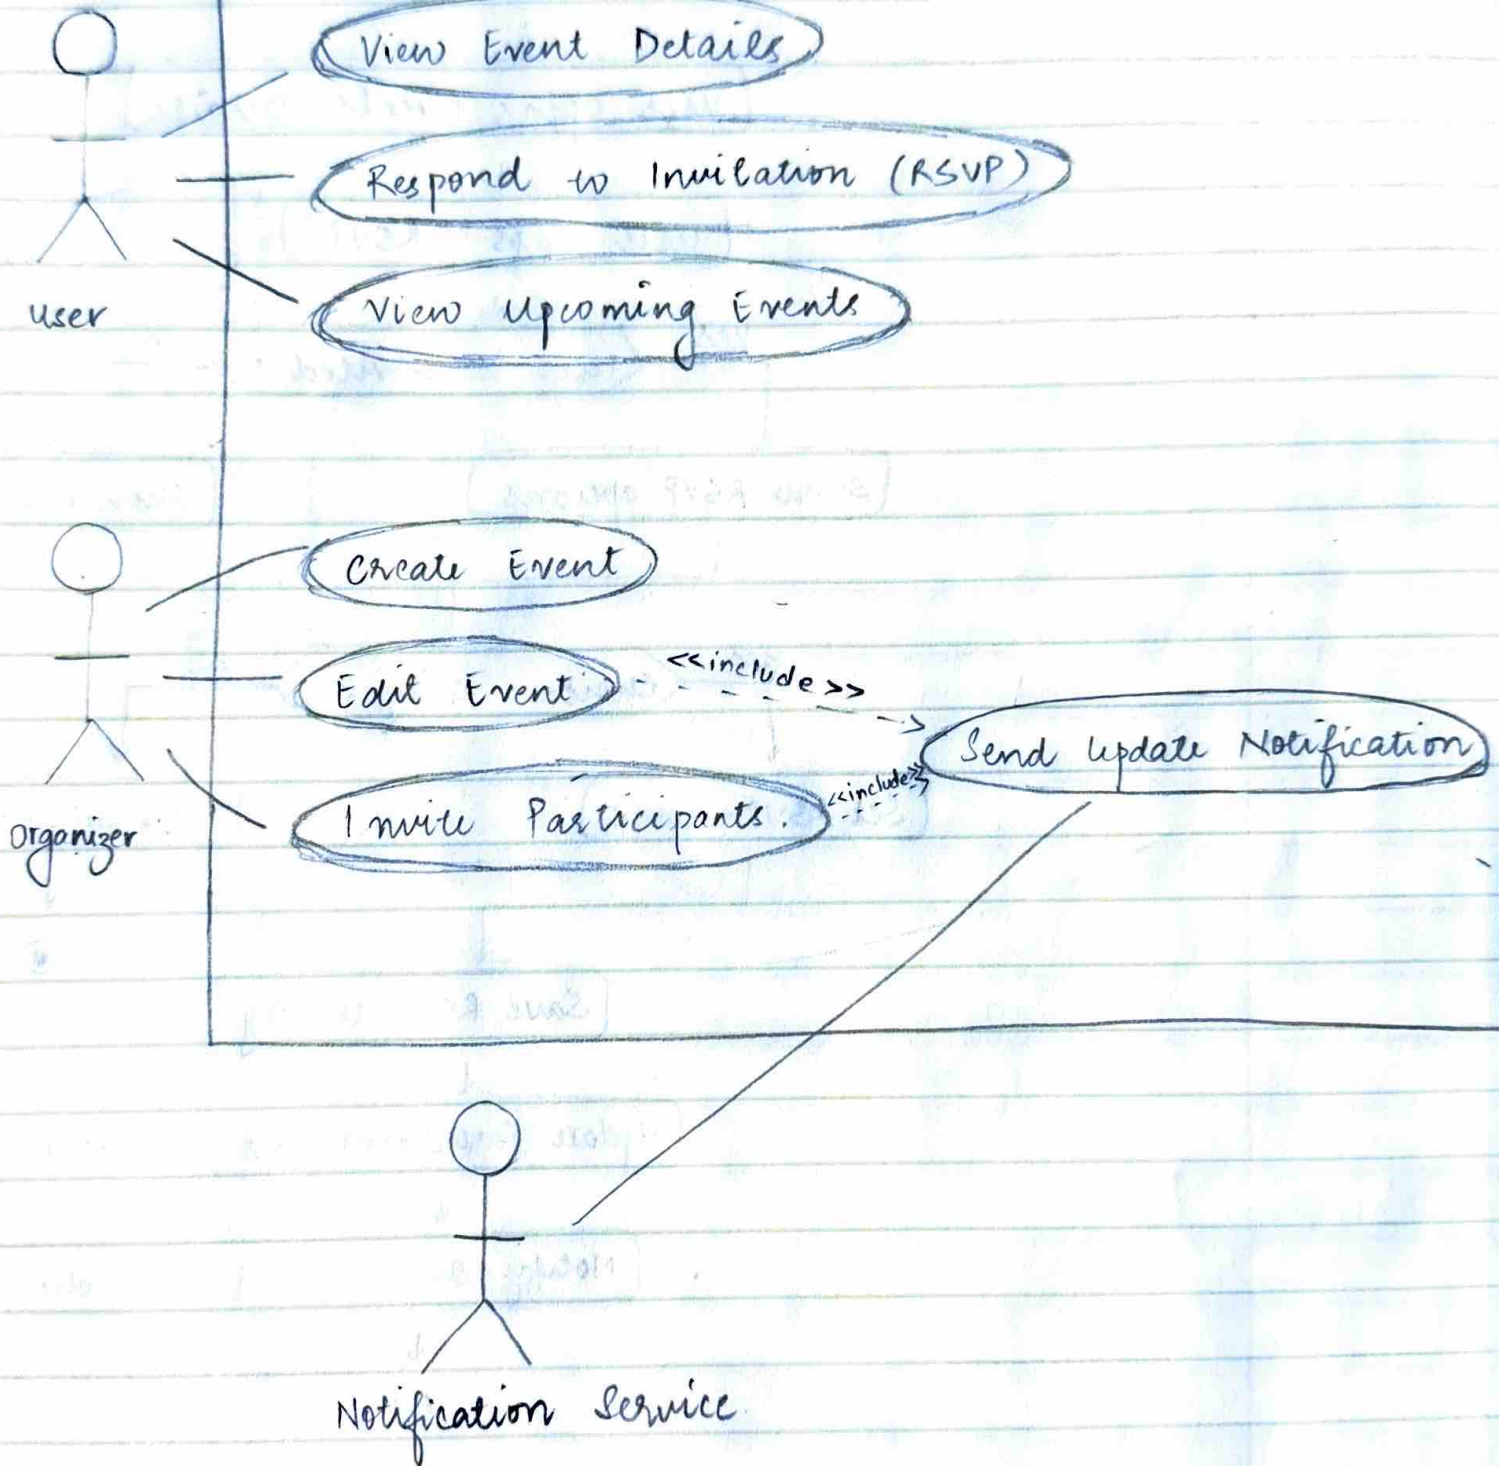 View Event Details
Respond to Invitation (RSVP)
View Upcoming Events
user
Create Event
Edit Event
<<include>>
Send Update Notification
<<include>>
Invite Participants.
Organizer
Notification Service